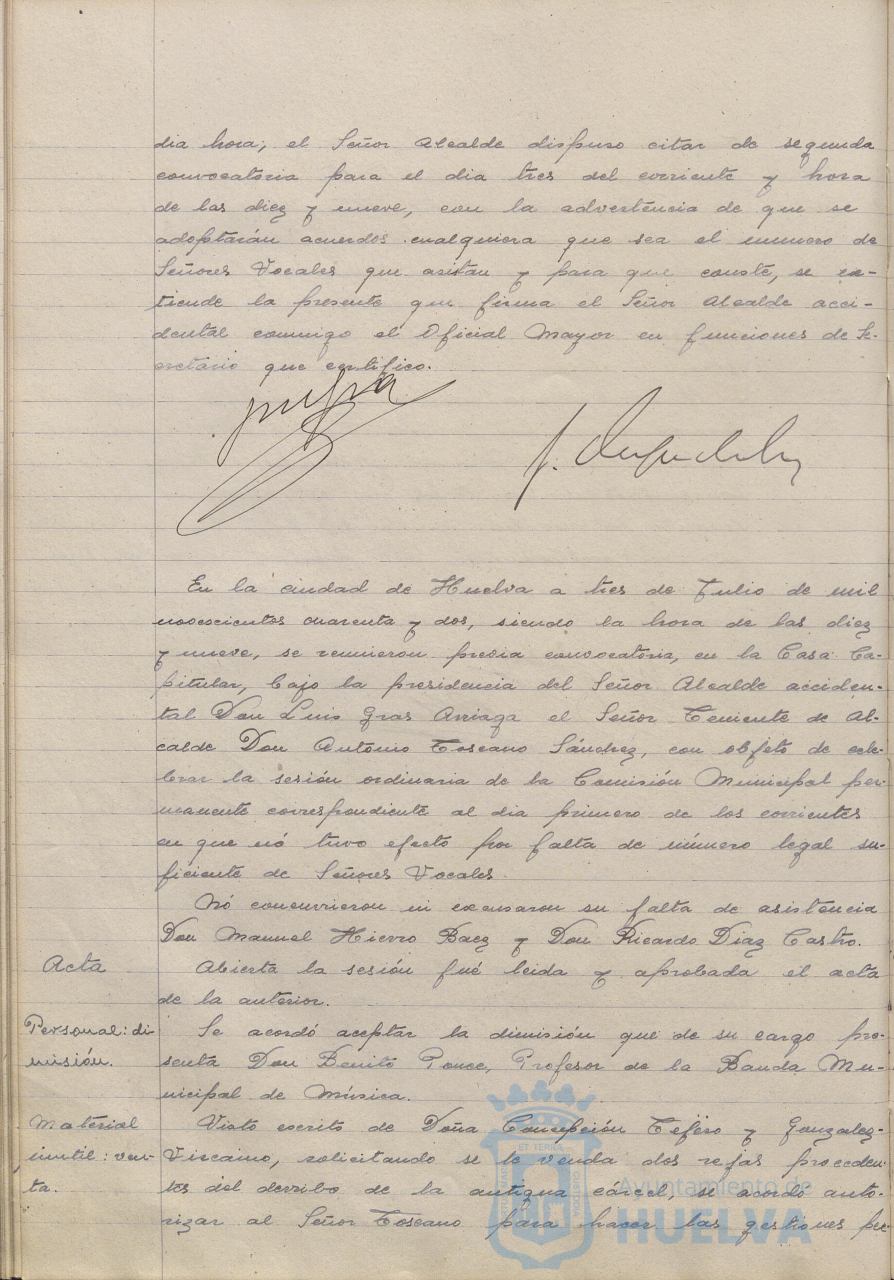 dia hora; el Señor Alcalde dispuso citar de segunda
convocatoria para el dia tres del corriente y hora
de las diez y nueve, con la advertencia de que se
adoptarán acuerdos cualquiera que sea el numero de
Señores Vocales que asitan y para que conste, se ex-
tiende la presente que firma el Señor Alcalde acci-
dental conmigo el Oficial Mayor en funciones de Se-
cretario que certifico.
En la ciudad de Huelva a tres de Julio de mil
novecientos cuarenta y dos, siendo la hora de las diez
y nueve, se reunieron previa convocatoria, en la Casa Ca-
pitular, bajo la presidencia del Señor Alcalde acciden-
tal Don Luis Gras Arriaga el Señor Teniente de Al-
calde Don Antonio Toscano Sánchez, con objeto de cele-
brar la sesión ordinaria de la Comisión Municipal per-
manente correspondiente al dia primero de los corrientes
en que nó tuvo efecto por falta de número legal su-
ficiente de Señores Vocales.
Nó concurrieron ni excusaron su falta de asistencia
Don Manuel Hierro Baez y Don Ricardo Diaz Castro.
Acta
Abierta la sesión fué leida y aprobada el acta
de la anterior.
Personal: di-
misión.
Se acordó aceptar la dimisión que de su cargo pre-
senta Don Benito Ponce, Profesor de la Banda Mu-
nicipal de Música.
Material
inutil: ven-
ta.
Visto escrito de Doña Concepción Tejero y Gonzalez-
Vizcaino, solicitando se le venda dos rejas proceden-
tes del derribo de la antigua cárcel, se acordó auto-
rizar al Señor Toscano para hacer las gestiones per-
Ayuntamiento de
HUELVA